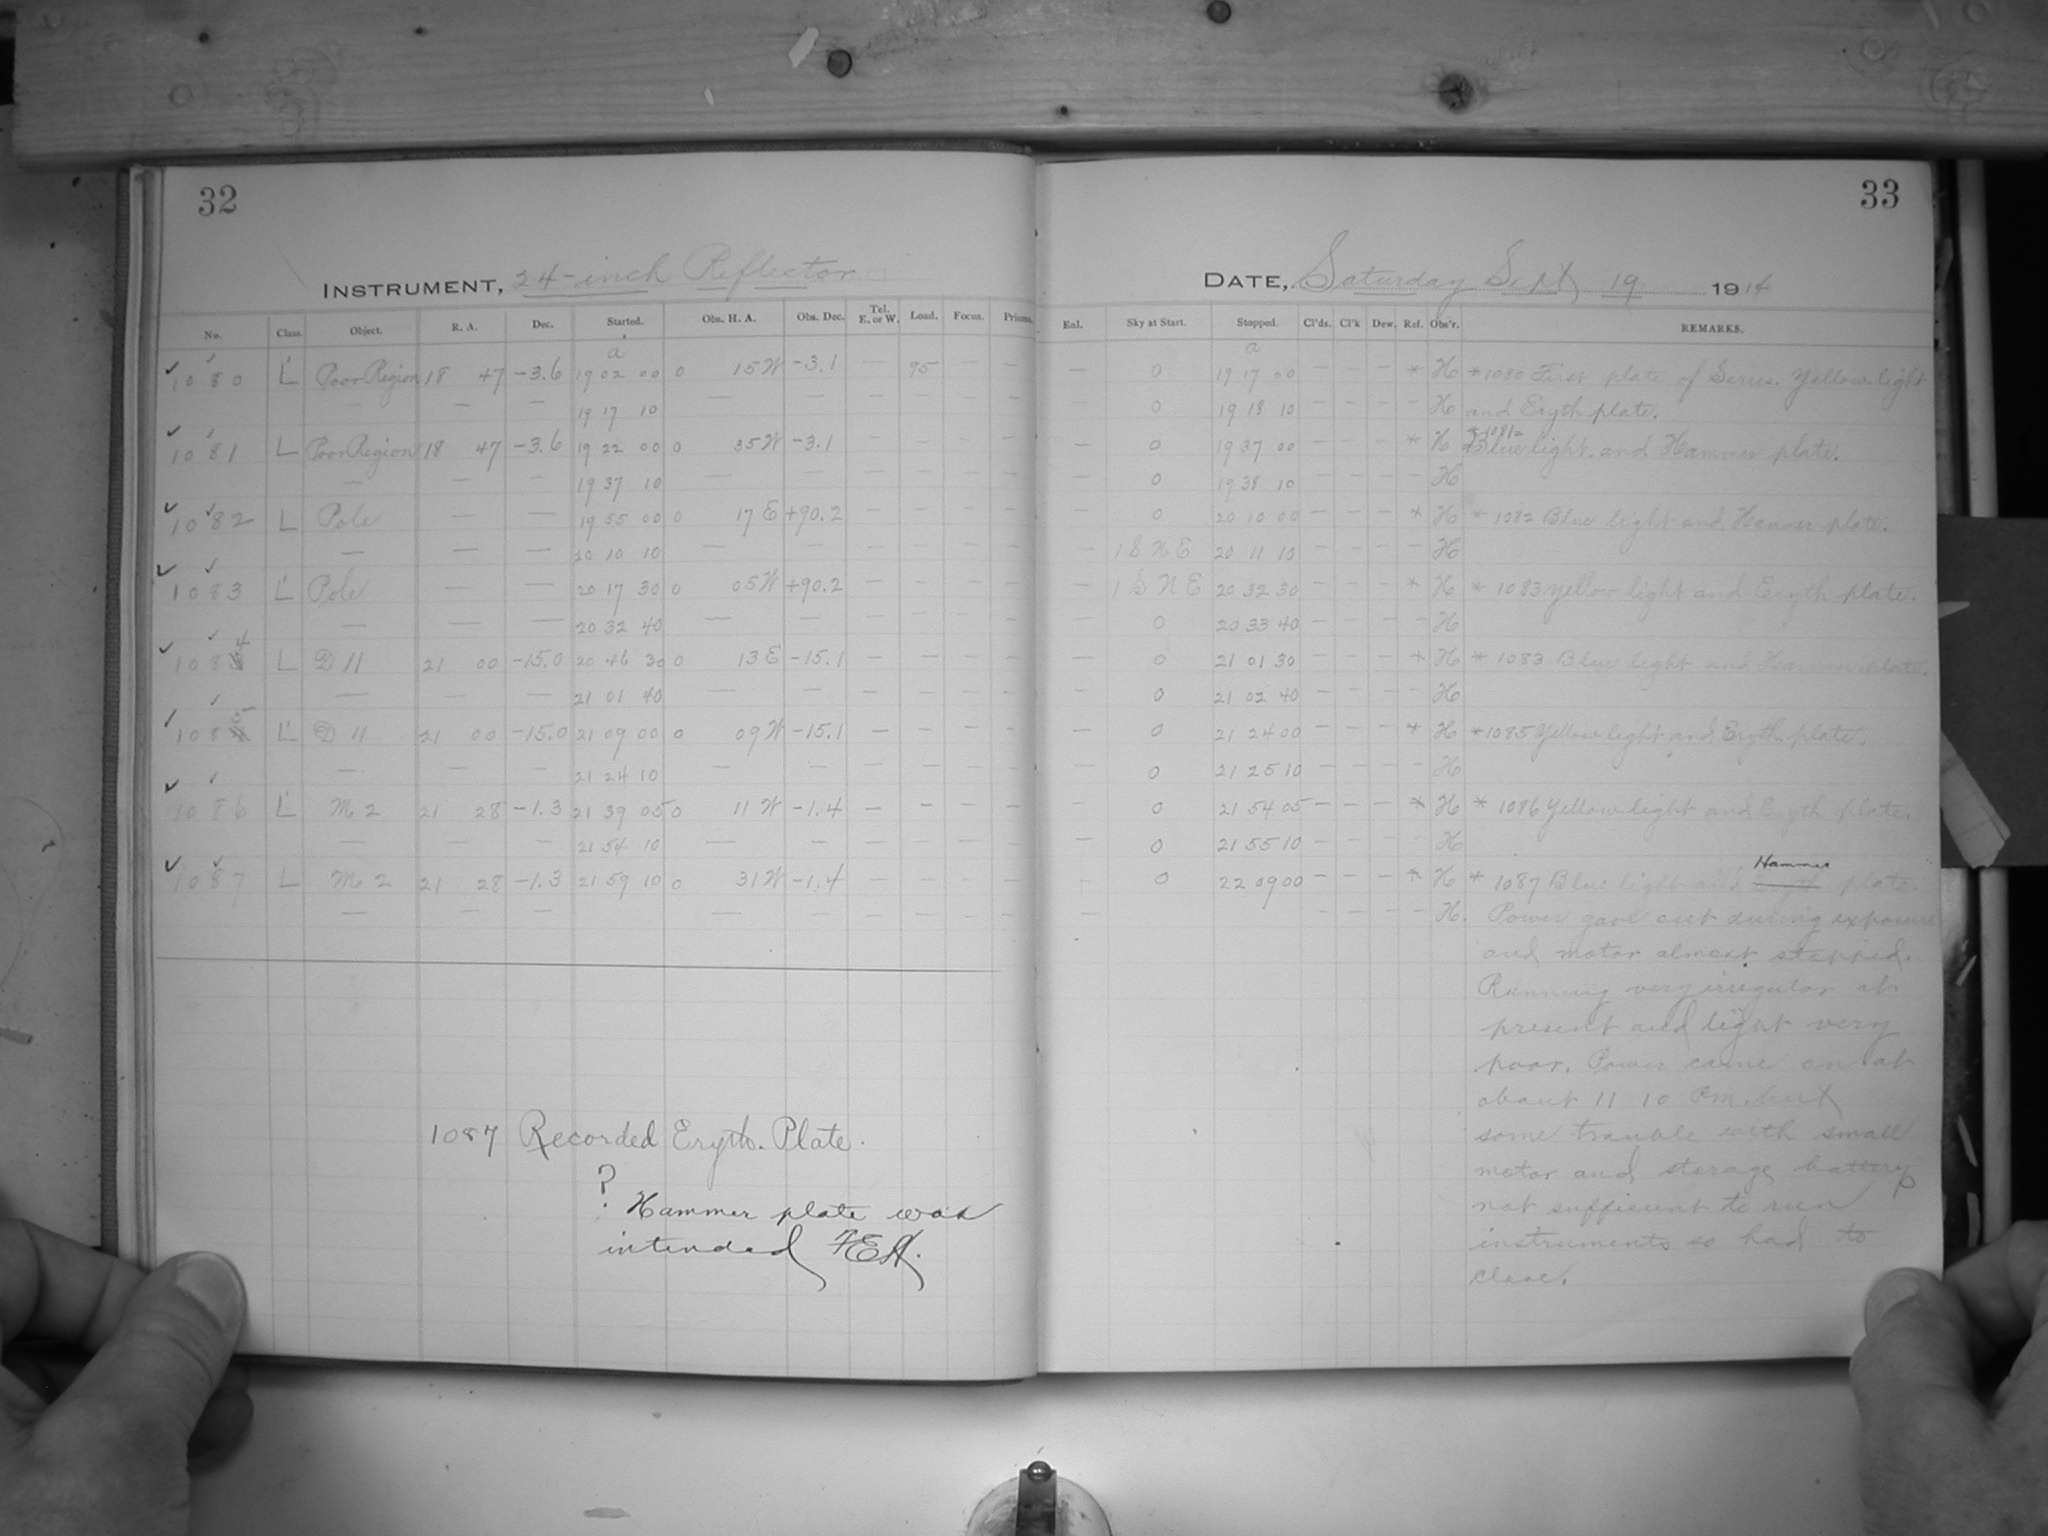 32
INSTRUMENT, 24-inch Reflector
No. Class. Object. R. A. Dec. Started. Obs. H. A. Obs. Dec. Tel. E. or W. Load. Focus. Prisms.
a
1080 L' Poor Region 18 47 -3.6 19 02 00 0 15 W -3.1 — 95 — —
— — — 19 17 10 — — — — — —
1081 L Poor Region 18 47 -3.6 19 22 00 0 35 W -3.1 — — — —
— — — 19 37 10 — — — — — —
1082 L Pole — — 19 55 00 0 17 E +90.2 — — — —
— — — 20 10 10 — — — — — —
1083 L' Pole — — 20 17 30 0 05 W +90.2 — — — —
— — — 20 32 40 — — — — — —
1084 L D 11 21 00 -15.0 20 46 30 0 13 E -15.1 — — — —
— — — 21 01 40 — — — — — —
1085 L' D 11 21 00 -15.0 21 09 00 0 09 W -15.1 — — — —
— — — 21 24 10 — — — — — —
1086 L' M 2 21 28 -1.3 21 39 05 0 11 W -1.4 — — — —
— — — 21 54 10 — — — — — —
1087 L M 2 21 28 -1.3 21 59 10 0 31 W -1.4 — — — —
— — — — — — — — —
1087 Recorded Eryth. Plate.
?
Hammer plate was
intended FEH.
33
DATE, Saturday Sept 19 1914
Enl. Sky at Start. Stopped. Cl'ds. Cl'k Dew. Ref. Obs'r. REMARKS.
a
— 0 19 17 00 — — — * H * 1080 First plate of Series. Yellow light
— 0 19 18 10 — — — — H and Eryth plate.
— 0 19 37 00 — — — * H * 1081= Blue light and Hammer plate.
— 0 19 38 10 — — — — H
— 0 20 10 00 — — — * H * 1082 Blue light and Hammer plate.
— 1 S N E 20 11 10 — — — — H
— 1 S N E 20 32 30 — — — * H * 1083 Yellow light and Eryth plate.
— 0 20 33 40 — — — — H
— 0 21 01 30 — — — * H * 1083 Blue light and Hammer plate.
— 0 21 02 40 — — — — H
— 0 21 24 00 — — — * H * 1085 Yellow light and Eryth plate.
— 0 21 25 10 — — — — H
— 0 21 54 05 — — — * H * 1086 Yellow light and Eryth plate.
— 0 21 55 10 — — — — H
Hammer
— 0 22 09 00 — — — * H * 1087 Blue light and Eryth plate.
— — — — — H. Power gave out during exposure
and motor almost stopped.
Running very irregular at
present and light very
poor. Power came on at
about 11 10 P.m. but
some trouble with small
motor and storage battery
not sufficient to run
instruments so had to
close.